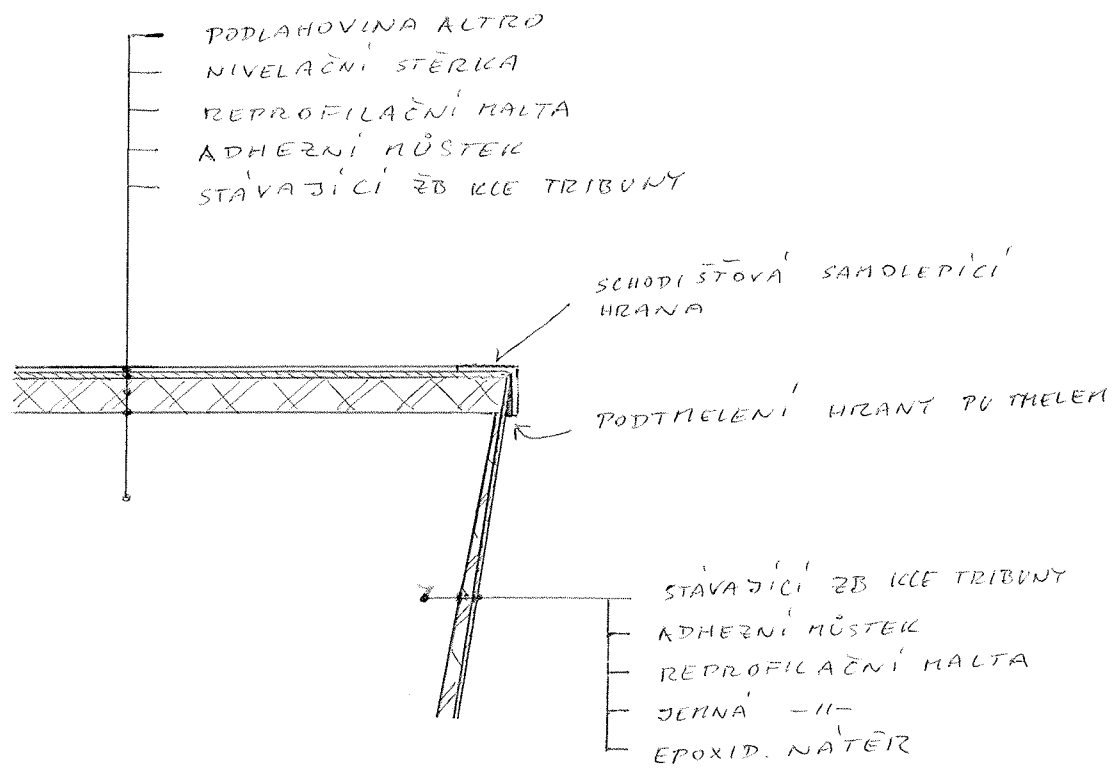 PODLAHOVINA ALTRO
NIVELAČNÍ STĚRKA
REPROFILAČNÍ MALTA
ADHEZNÍ MŮSTEK
STÁVAJÍCÍ ŽB KCE TRIBUNY
SCHODIŠŤOVÁ SAMOLEPÍCÍ
HRANA
PODTMELENÍ HRANY PU TMELEM
STÁVAJÍCÍ ŽB KCE TRIBUNY
ADHEZNÍ MŮSTEK
REPROFILAČNÍ MALTA
JEMNÁ -"-
EPOXID. NÁTĚR